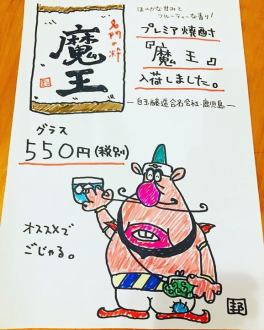 ほのかな甘みと
フルーティーな香り!
プレミア焼酎
『魔王』
入荷しました。
―白玉醸造合名会社・鹿児島―
名門の粋
魔王
グラス
550円(税別)
オススメで
ごじゃる。